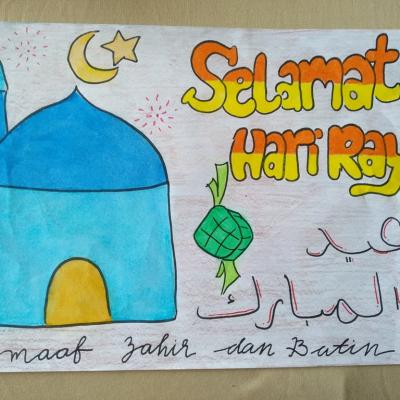 Selamat
Hari Ray
عيد
المبارك
maaf Zahir dan Batin